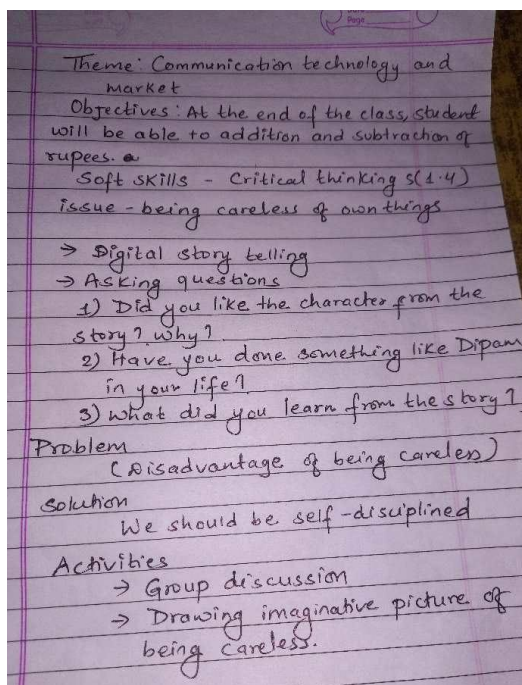 Page
Theme: Communication technology and
market
Objectives: At the end of the class, student
will be able to addition and subtraction of
rupees. a
Soft skills - Critical thinking s(1.4)
issue - being careless of own things
→ Digital story telling
→ Asking questions
1) Did you like the character from the
story? why?
2) Have you done something like Dipam
in your life?
3) what did you learn from the story?
Problem
(Disadvantage of being careless)
solution
We should be self-disciplined
Activities
→ Group discussion
→ Drawing imaginative picture of
being careless.